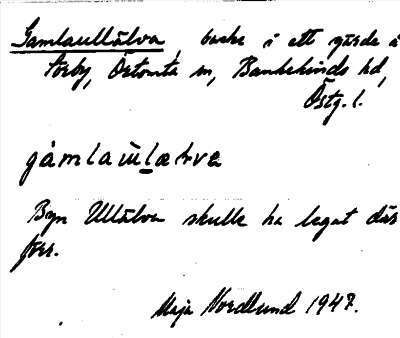 Gamlaullälva, backe i ett gärde å
Torby, Östomta sn, Bankekinds hd,
Östg. l.
gàmlaùlælva
Byn Ullälva skulle ha legat där
förr.
Maja Nordlund 1947.